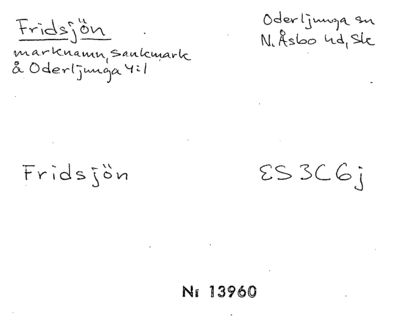 Fridsjön
marknamn, sankmark
å Oderljunga 4:1
Oderljunga sn
N. Åsbo hd, Sk
Fridsjön
ES 3C6j
Nr 13960